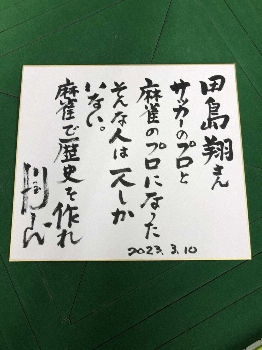 田島翔さん
サッカーのプロと
麻雀のプロになった
そんな人は一人しか
いない。
麻雀で歴史を作れ
2023. 3. 10